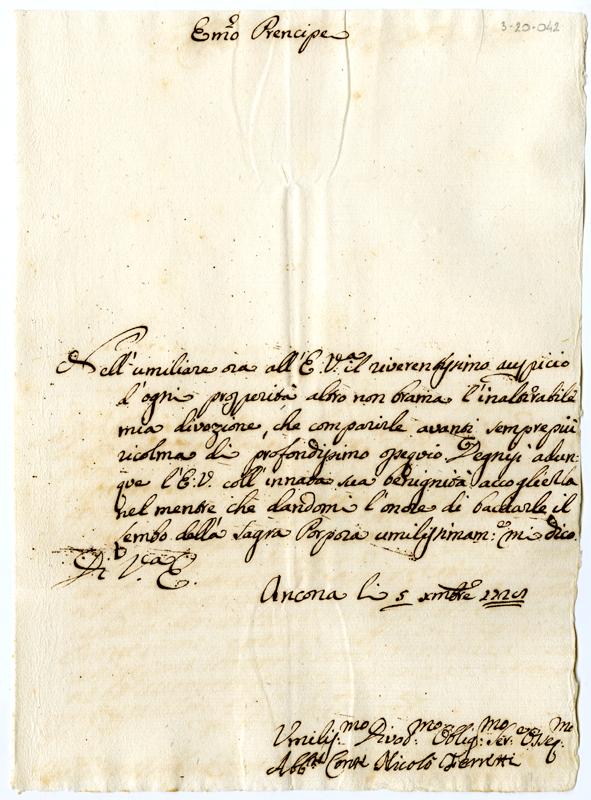 3-20-042
Emo Prencipe
Nell'umiliare ora all'E. V.ra il riverentissimo auspicio
d'ogni prosperità altro non brama l'inalterabile
mia divozione, che comparirle avanti sempre più
ricolma di profondissimo ossequio. Degnisi adun-
que l'E. V. coll'innata sua benignità accoglierla
nel mentre che dandomi l'onore di bacciarle il
lembo della sagra Porpora umilissimam:e mi dico.
Di V.ra E.
Ancona li 5 xmbre
Umiliss:mo Divot:mo Oblig:mo Ser:e Osseq:mo
Abb:e Conte Nicolò Ferretti